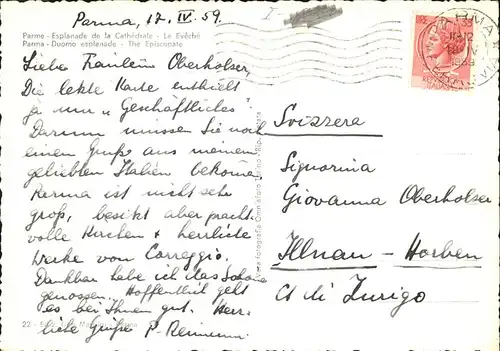 Parma, 17. IV. 59.
Parme - Esplanade de la Cathédrale - Le Evêché
Parma - Duomo esplanade - The Episcopate
Liebe Fräulein Oberholser,
Die letzte Karte enthielt
ja nur „Geschäftliches"
Darum müssen Sie noch
einen Gruß aus meinem
geliebten Italien bekomm
Parma ist nicht sehr
groß, besitzt aber pracht
volle Kirchen & herrliche
Werke von Correggio.
Dankbar habe ich das Schöne
genossen. Hoffentlich geht
es bei Ihnen gut. Herz-
liche Grüße P.
22
Svizzera
Signorina
Giovanna Oberholser
Illnau - Horben
Ct di Zurigo
PARMA
1959